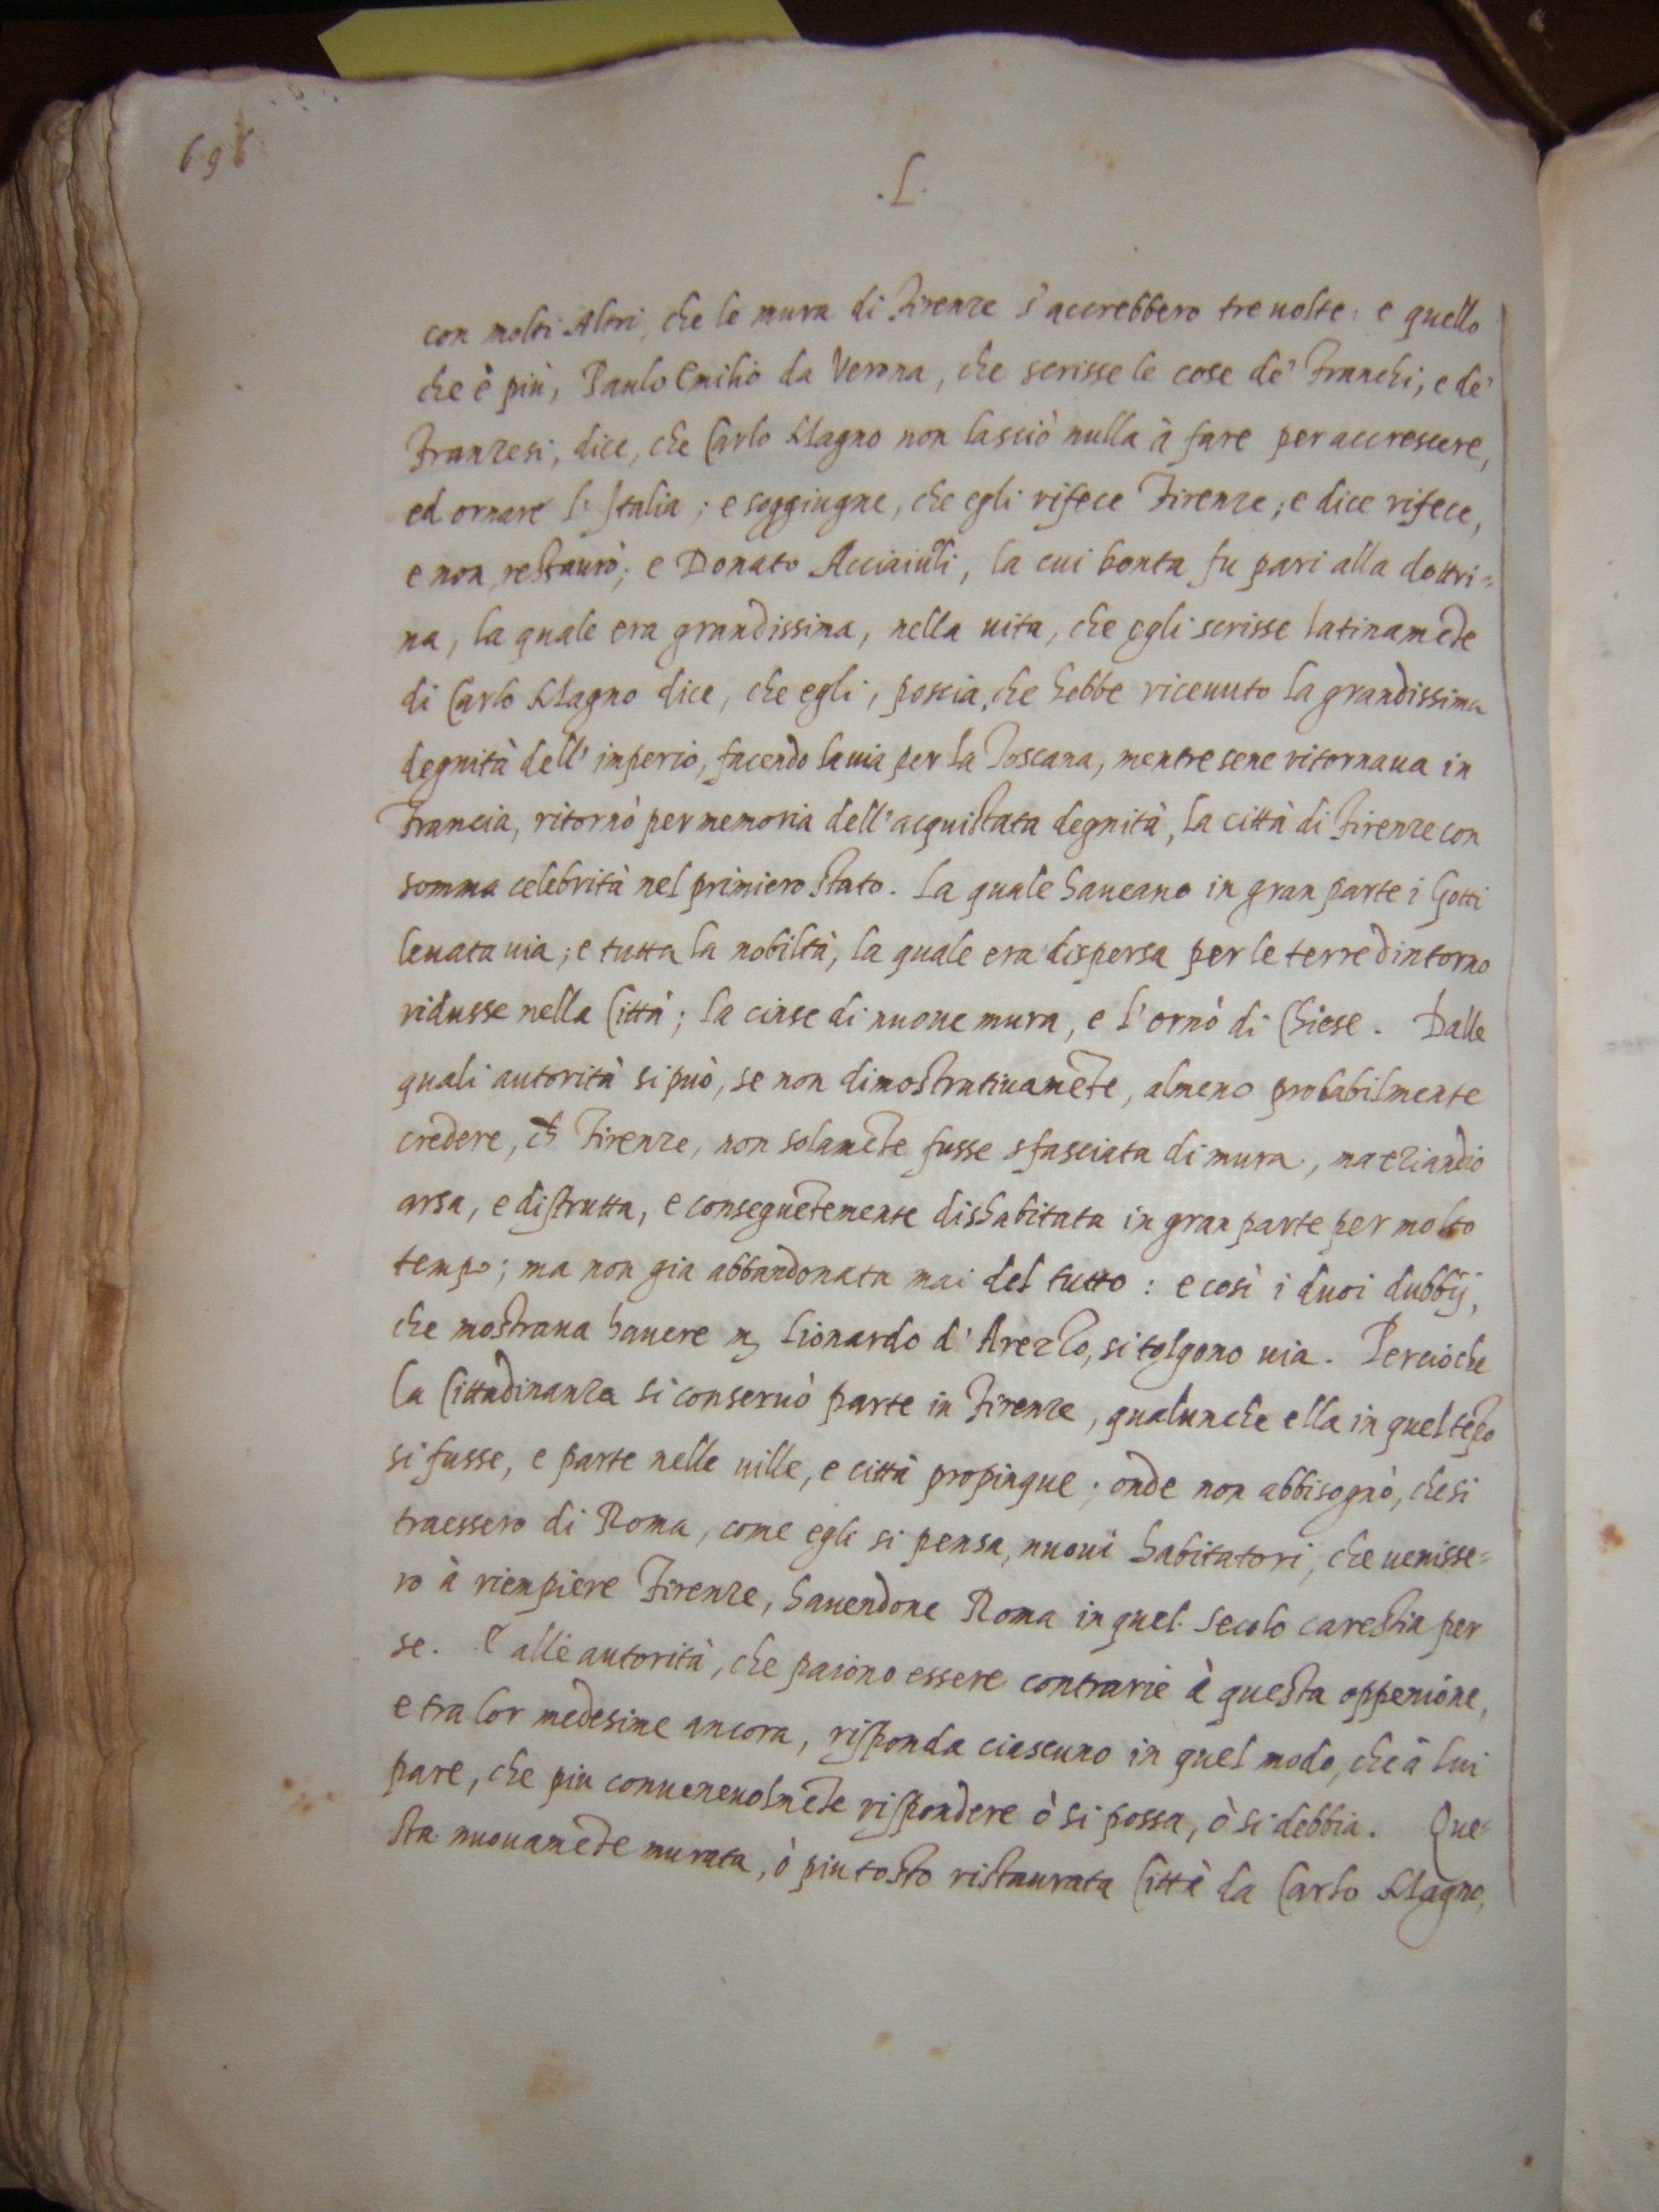 698
.L.
con molti Altri, che le mura di Firenze s'accrebbero tre uolte: e quello
che è più, Paulo Emilio da Verona, che scrisse le cose de' Franchi, e de'
Franzesi, dice, che Carlo Magno non lasciò nulla à fare per accrescere,
ed ornare l'Italia; e soggiugne, che egli rifece Firenze; e dice rifece,
e non restaurò; e Donato Acciaiuoli, la cui bonta fu pari alla dottri=
na, la quale era grandissima, nella uita, che egli scrisse latinamẽte
di Carlo Magno dice, che egli, poscia, che hebbe riceuuto la grandissima
degnità dell'imperio, facendo la uia per la Toscana, mentre sene ritornaua in
Francia, ritornò per memoria dell'acquistata degnità, la città di Firenze con
somma celebrità nel primiero stato. La quale haueano in gran parte i Gotti
leuata uia; e tutta la nobiltà, la quale era dispersa per le terre dintorno
ridusse nella Città; la cinse di nuoue mura, e l'ornò di Chiese. Dalle
quali autorità si può, se non dimostratiuamẽte, almeno probabilmente
credere, ch̃ Firenze, non solamẽte fusse sfasciata di mura, ma eziandio
arsa, e distrutta, e conseguẽtemente dishabitata in gran parte per molto
tempo; ma non gia abbandonata mai del tutto: e così i duoi dubbij,
che mostraua hauere Lionardo d'Arezzo, si tolgono uia. Percioche
la Cittadinanza si conseruò parte in Firenze, qualunche ella in quel tẽpo
si fusse, e parte nelle uille, e città propinque; onde non abbisognò, che si
traessero di Roma, come egli si pensa, nuoui habitatori, che uenisse=
ro à riempiere Firenze, hauendone Roma in quel secolo carestia per
se. E alle autorità, che paiono essere contrarie à questa oppenione,
e tra lor medesime ancora, risponda ciascuno in quel modo, che à lui
pare, che piu conueneuolmẽte rispondere ò si possa, ò si debbia. Que=
sta nuouamẽte murata, ò piu tosto ristaurata Città da Carlo Magno,